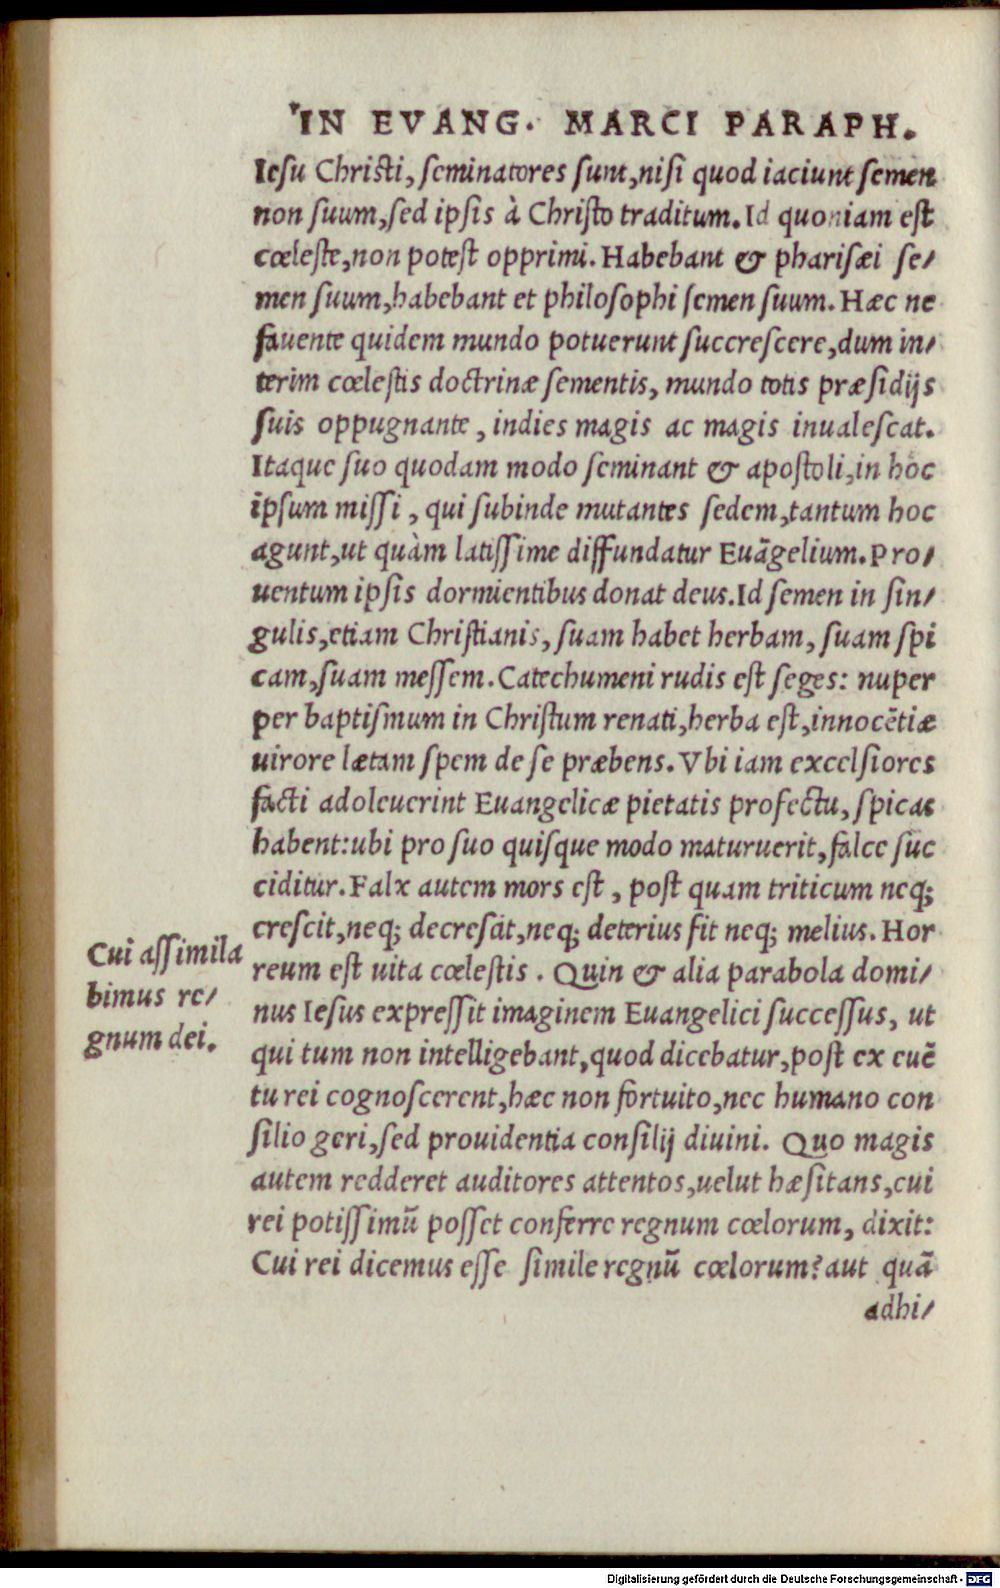 IN EVANG. MARCI PARAPH.
Iesu Christi, seminatores sunt, nisi quod iaciunt semen
non suum, sed ipsis à Christo traditum. Id quoniam est
cœleste, non potest opprimi. Habebant & pharisæi se/
men suum, habebant et philosophi semen suum. Hæc ne
fauente quidem mundo potuerunt succrescere, dum in/
terim cœlestis doctrinæ sementis, mundo totis præsidijs
suis oppugnante, indies magis ac magis inualescat.
Itaque suo quodam modo seminant & apostoli, in hoc
ipsum missi, qui subinde mutantes sedem, tantum hoc
agunt, ut quàm latissime diffundatur Euãgelium. Pro/
uentum ipsis dormientibus donat deus. Id semen in sin/
gulis, etiam Christianis, suam habet herbam, suam spi
cam, suam messem. Catechumeni rudis est seges: nuper
per baptismum in Christum renati, herba est, innocẽtiæ
uirore lætam spem de se præbens. Vbi iam excelsiores
facti adoleuerint Euangelicæ pietatis profectu, spicas
habent: ubi pro suo quisque modo maturuerit, falce suc
ciditur. Falx autem mors est, post quam triticum neq;
crescit, neq; decrescit, neq; deterius fit neq; melius. Hor
reum est uita cœlestis. Quin & alia parabola domi/
Cui assimila
bimus re/
gnum dei.
nus Iesus expressit imaginem Euangelici successus, ut
qui tum non intelligebant, quod dicebatur, post ex euẽ
tu rei cognoscerent, hæc non fortuito, nec humano con
silio geri, sed prouidentia consilij diuini. Quo magis
autem redderet auditores attentos, uelut hæsitans, cui
rei potissimũ posset conferre regnum cœlorum, dixit:
Cui rei dicemus esse simile regnũ cœlorum? aut quã
adhi/
Digitalisierung gefördert durch die Deutsche Forschungsgemeinschaft - DFG